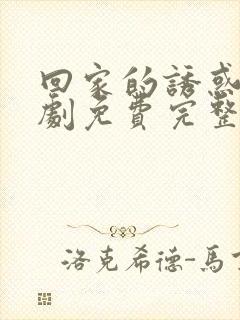 回家的誘惑
劇免費完整
洛克希德-馬丁